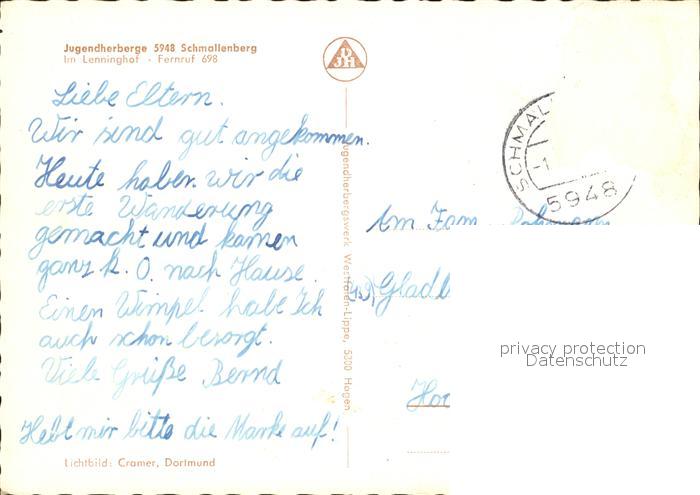 Jugendherberge 5948 Schmallenberg
Im Lenninghof - Fernruf 698
DJH
Liebe Eltern.
Wir sind gut angekommen.
Heute haben wir die
erste Wanderung
gemacht und kamen
ganz k. O. nach Hause.
Einen Wimpel habe Ich
auch schon besorgt.
Viele Grüße Bernd
Hebt mir bitte die Marke auf!
Lichtbild: Cramer, Dortmund
Jugendherbergswerk Westfalen-Lippe, 5800 Hagen
SCHMAL
-1
5948
Am Fam
Gladb
privacy protection
Datenschutz